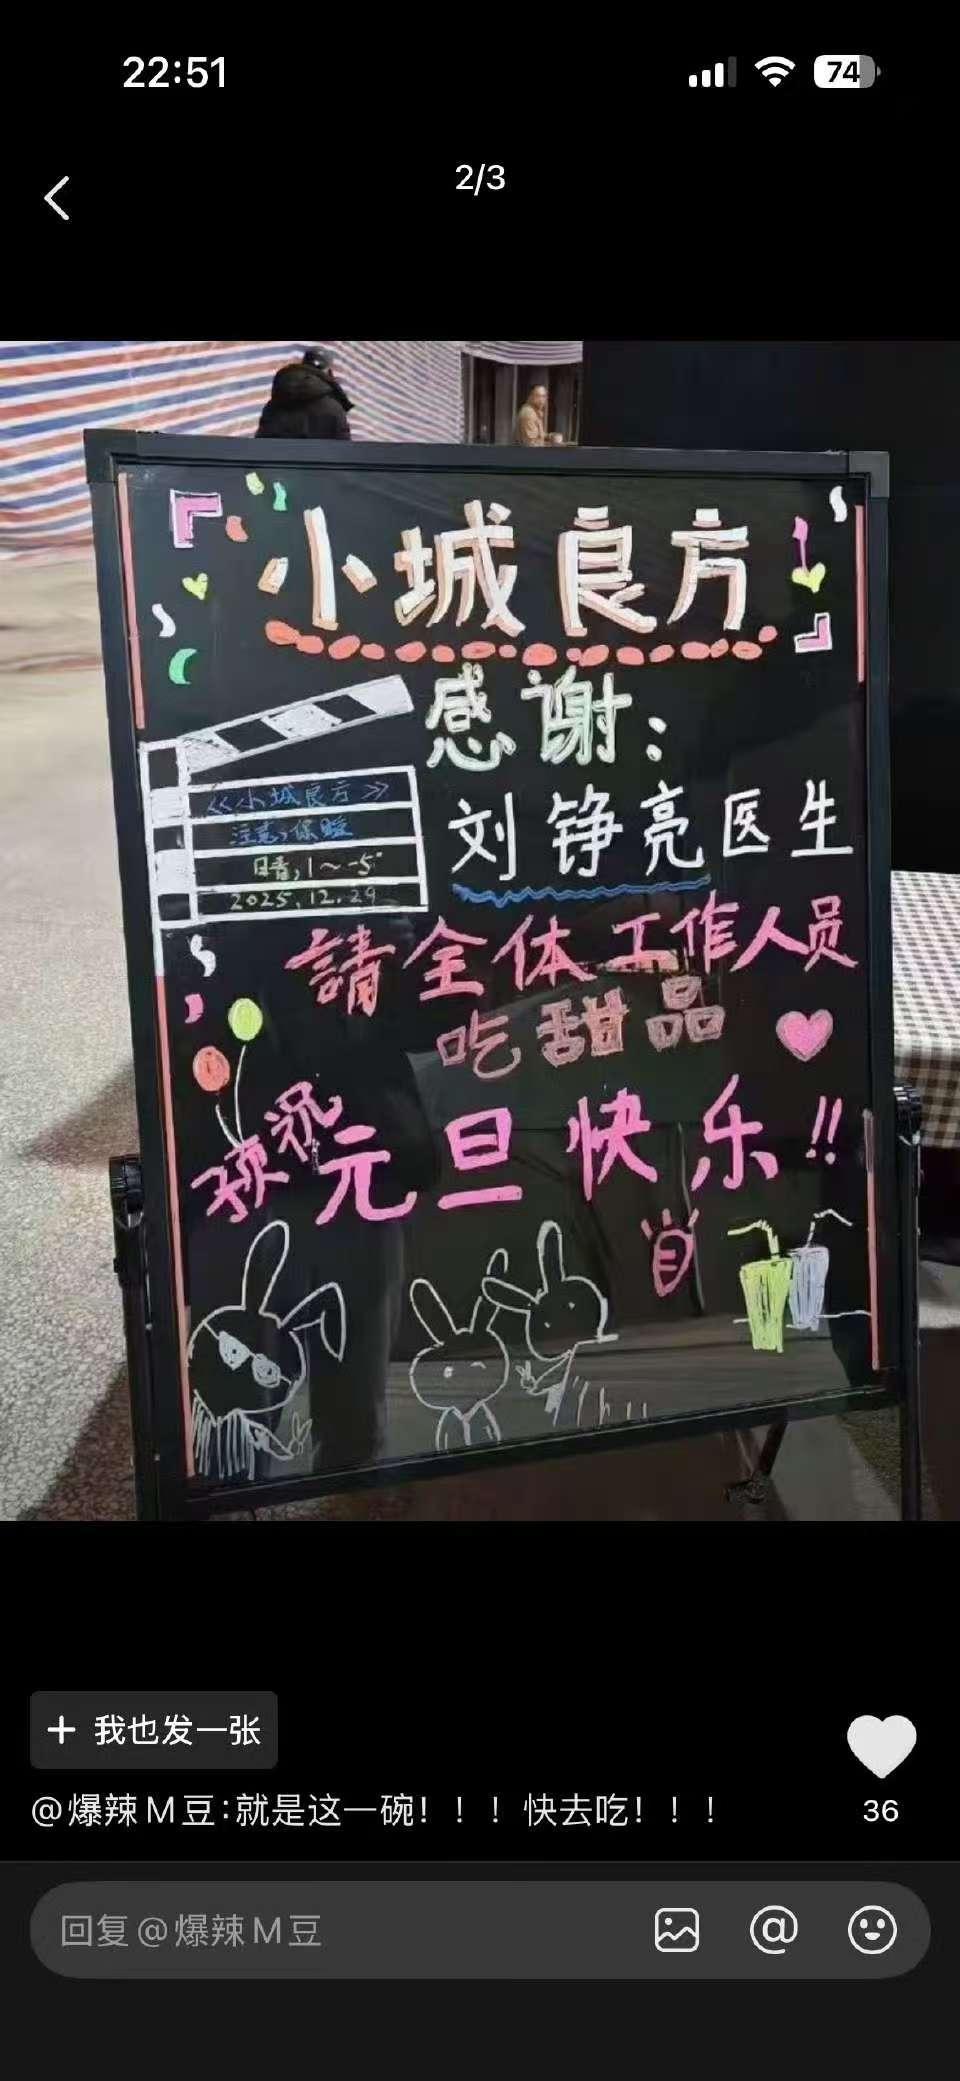 22:51
74
2/3
小城良方
感谢：
《小城良方》
注意，保暖
晴，1～-5°
2025.12.29
刘铮亮医生
請全体工作人员
吃甜品
预祝
元旦快乐!!
+ 我也发一张
@爆辣M豆:就是这一碗！！！快去吃！！！
36
回复@爆辣M豆